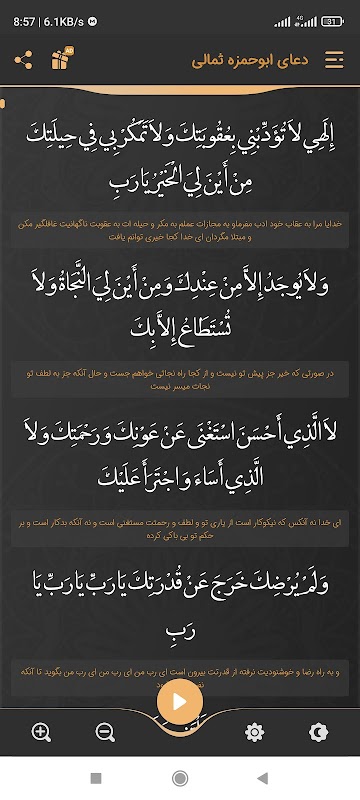 8:57 | 6.1KB/s
4G
31
AD
دعای ابوحمزه ثمالی
إِلَهِي لاَ تُؤَدِّبْنِي بِعُقُوبَتِكَ وَلاَ تَمْكُرْ بِي فِي حِيلَتِكَ
مِنْ أَيْنَ لِيَ الْخَيْرُ يَا رَبِ
خدایا مرا به عقاب خود ادب مفرماو به مجازات عملم به مکر و حیله ات به عقوبت ناگهانیت غافلگیر مکن
و مبتلا مگردان ای خدا کجا خیری توانم یافت
وَلاَ يُوجَدُ إِلاَّ مِنْ عِنْدِكَ وَ مِنْ أَيْنَ لِيَ النَّجَاةُ وَلاَ
تُسْتَطَاعُ إِلاَّ بِكَ
در صورتی که خیر جز پیش تو نیست و از کجا راه نجاتی خواهم جست و حال آنکه جز به لطف تو
نجات میسر نیست
لاَ الَّذِي أَحْسَنَ اسْتَغْنَى عَنْ عَوْنِكَ وَ رَحْمَتِكَ وَلاَ
الَّذِي أَسَاءَ وَ اجْتَرَأَ عَلَيْكَ
ای خدا نه آنکس که نیکوکار است از یاری تو و لطف و رحمتت مستغنی است و نه آنکه بدکار است و بر
حکم تو بی باکی کرده
وَلَمْ يُرْضِكَ خَرَجَ عَنْ قُدْرَتِكَ يَا رَبِّ يَا رَبِّ يَا
رَبِ
و به راه رضا و خشنودیت نرفته از قدرتت بیرون است ای رب من ای رب من ای رب من بگوید تا آنکه